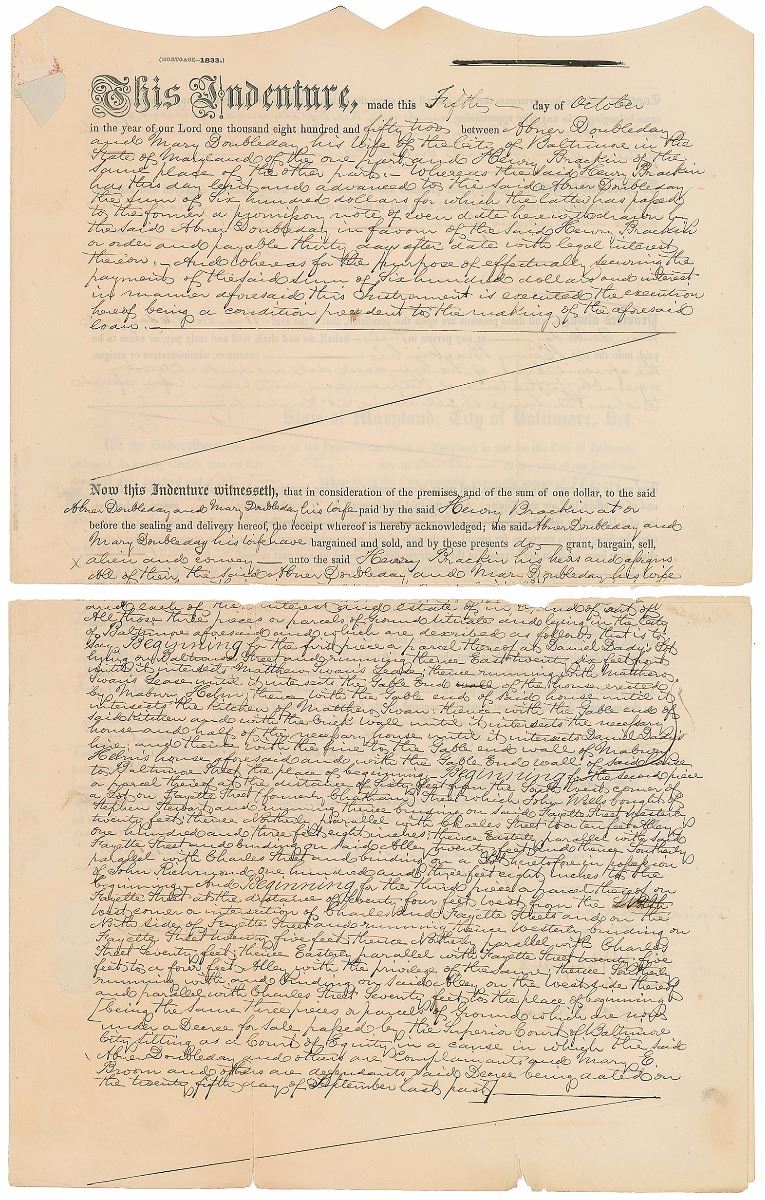 (MORTGAGE—1833.)
This Indenture, made this Fifth day of October
in the year of our Lord one thousand eight hundred and fifty two between Abner Doubleday
and Mary Doubleday his wife of the City of Baltimore in the
State of Maryland of the one part and Henry Brackin of the
same place of the other part:— Whereas the said Henry Brackin
has this day lent and advanced to the said Abner Doubleday
the sum of Six hundred dollars for which the latter has passed
to the former a promissory note of even date herewith drawn by
the said Abner Doubleday in favor of the said Henry Brackin
or order and payable thirty days after date with legal interest
thereon:— And whereas for the purpose of effectually securing the
payment of the said sum of Six hundred dollars and interest
in manner aforesaid this Instrument is executed the execution
hereof being a condition precedent to the making of the aforesaid
loan.—
Now this Indenture witnesseth, that in consideration of the premises, and of the sum of one dollar, to the said
Abner Doubleday and Mary Doubleday his wife paid by the said Henry Brackin at or
before the sealing and delivery hereof, the receipt whereof is hereby acknowledged; the said Abner Doubleday and
Mary Doubleday his wife have bargained and sold, and by these presents do grant, bargain, sell,
x alien and convey unto the said Henry Brackin his heirs and assigns
all of their, the said Abner Doubleday and Mary Doubleday his wife
and each of the interest and estate of in and of out of
All those three pieces or parcels of Ground situate and lying in the City
of Baltimore aforesaid and which are described as follows that is to
say Beginning for the first piece or parcel thereof at Daniel Dady's Lot
lying on Baltimore Street and running thence East twenty six feet front
until it intersect Matthew Swan's Lease; thence running with Matthew
Swan's Lease until it intersects the Gable End of the house erected
by Mabury Helms; thence with the Gable end of said house until it
intersects the Kitchen of Matthew Swan thence with the Gable end of
said Kitchen and with the brick wall until it intersects the necessary
house and half of the necessary house until it intersects Daniel Dady's
line; and thence with the line to the Gable end wall of Mabury
Helms house aforesaid and with the Gable End wall of said house
to Baltimore Street the place of beginning. Beginning for the second piece
or parcel thereof at the distance of Sixty feet from the South West corner of
a Lot on Fayette Street (formerly Chatham) Street which John Wells bought of
Stephen Stewart and running thence binding on said Fayette Street westerly
twenty feet; thence Northerly parallel with Charles Street to a ten feet Alley
one hundred and three feet eight inches; thence Easterly parallel with said
Fayette Street and binding on said Alley twenty feet and thence Southerly
parallel with Charles Street and binding on a Lot heretofore in possession
of John Richmond one hundred and three feet eight inches to the
beginning— And Beginning for the third piece or parcel thereof on
Fayette Street at the distance of Seventy four feet west from the North
west corner or intersection of Charles and Fayette Streets and on the
North side of Fayette Street and running thence Westerly binding on
Fayette Street twenty five feet thence Northerly parallel with Charles
Street Seventy feet; thence Easterly parallel with Fayette Street twenty five
feet to a four feet Alley with the privilege of the same; thence Southerly
running with and binding on said Alley on the west side thereof
and parallel with Charles Street Seventy feet to the place of beginning
[being the same three pieces or parcels of Ground which are now
under a Decree for sale passed by the Superior Court of Baltimore
City sitting as a Court of Equity in a cause in which the said
Abner Doubleday and others are Complainants and Mary E.
Broom and others are defendants said Decree being dated on
the twenty fifth day of September last past]